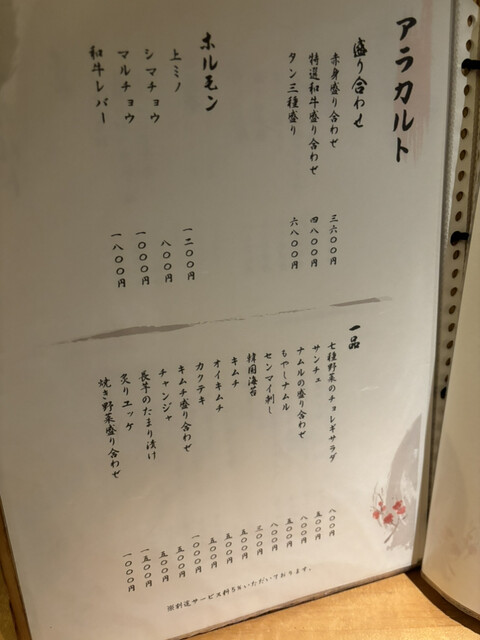 アラカルト
盛り合わせ
赤身盛り合わせ 三六〇〇円
特選和牛盛り合わせ 四八〇〇円
タン三種盛り 六八〇〇円
ホルモン
上ミノ 一二〇〇円
シマチョウ 八〇〇円
マルチョウ 一〇〇〇円
和牛レバー 一八〇〇円
一品
七種野菜のチョレギサラダ 八〇〇円
サンチュ 五〇〇円
ナムルの盛り合わせ 八〇〇円
もやしナムル 五〇〇円
センマイ刺し 八〇〇円
韓国海苔 三〇〇円
キムチ 五〇〇円
オイキムチ 五〇〇円
カクテキ 五〇〇円
キムチ盛り合わせ 一〇〇〇円
チャンジャ 五〇〇円
長芋のたまり漬け 五〇〇円
炙りエッケ 一五〇〇円
焼き野菜盛り合わせ 一〇〇〇円
※別途サービス料5%いただいております。